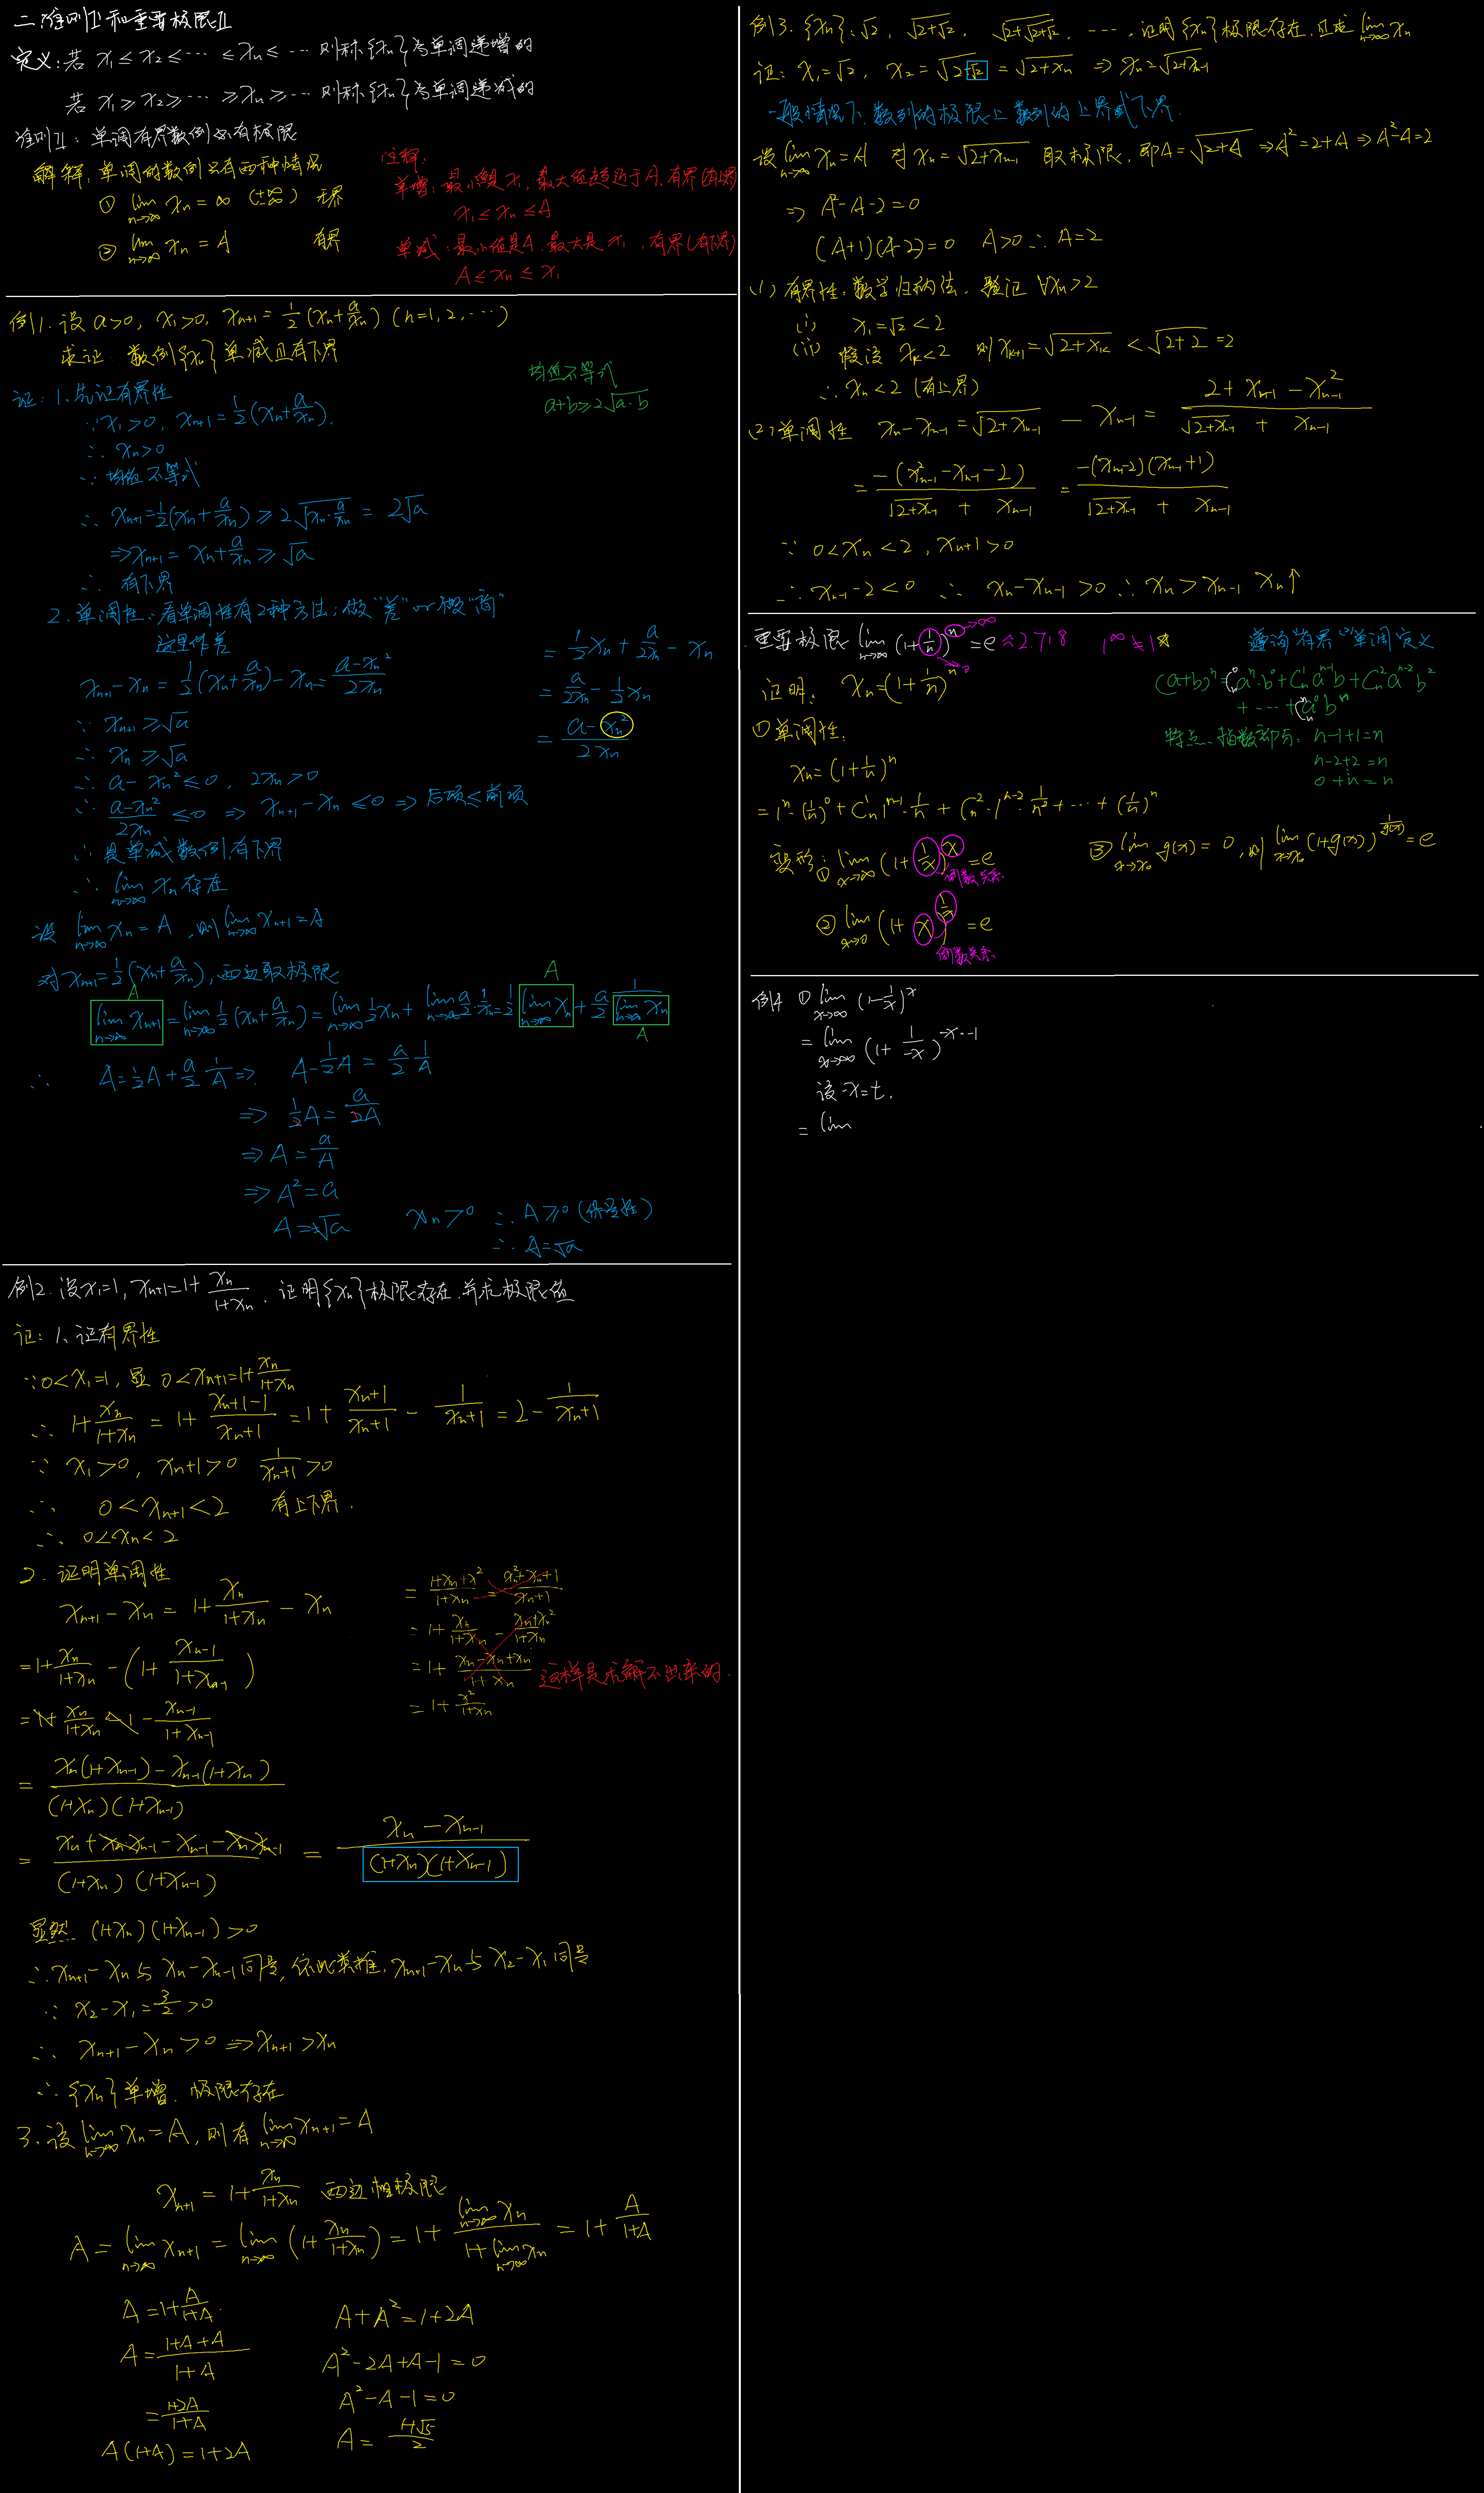 二.准则II和重要极限II
定义:若 x₁≤x₂≤⋯≤xₙ≤⋯ 则称{xₙ}为单调递增的
若 x₁≥x₂≥⋯≥xₙ≥⋯ 则称{xₙ}为单调递减的
准则II:单调有界数例必有极限
解释:单调的数例只有两种情况
① lim n→∞ xₙ=∞ (±∞) 无界
② lim n→∞ xₙ=A 有界
注释:
单增:最小值是x₁,最大值趋近于A,有界(有上界)
x₁≤xₙ≤A
单减:最小值是A,最大是x₁,有界(有下界)
A≤xₙ≤x₁
例1.设a>0, x₁>0, xₙ₊₁=1/2(xₙ+a/xₙ) (n=1,2,⋯)
求证:数例{xₙ}单减且有下界
均值不等式
a+b≥2√(a·b)
证:1.先证有界性
∵x₁>0, xₙ₊₁=1/2(xₙ+a/xₙ).
∴xₙ>0
∵均值不等式
∴xₙ₊₁=1/2(xₙ+a/xₙ)≥2√(xₙ·a/xₙ)=2√a
⇒xₙ₊₁=xₙ+a/xₙ≥√a
∴有下界
2.单调性:看单调性有2种方法:做"差"or做"商"
这里作差
xₙ₊₁-xₙ=1/2(xₙ+a/xₙ)-xₙ=(a-xₙ²)/2xₙ
=1/2xₙ+a/2xₙ-xₙ
=a/2xₙ-1/2xₙ
=(a-xₙ²)/2xₙ
∵xₙ₊₁≥√a
∴xₙ≥√a
∴a-xₙ²≤0, 2xₙ>0
∴(a-xₙ²)/2xₙ≤0 ⇒ xₙ₊₁-xₙ≤0 ⇒后项≤前项
∴是单减数例,有下界
∴lim n→∞ xₙ存在
设 lim n→∞ xₙ=A,则lim n→∞ xₙ₊₁=A
对xₙ₊₁=1/2(xₙ+a/xₙ),两边取极限
A A
lim n→∞ xₙ₊₁=lim n→∞ 1/2(xₙ+a/xₙ)=lim n→∞ 1/2xₙ+lim n→∞ a/2·1/xₙ=1/2 lim n→∞ xₙ+a/2 1/lim n→∞ xₙ
A
∴ A=1/2A+a/2 1/A⇒ A-1/2A=a/2 1/A
⇒ 1/2A=a/2A
⇒ A=a/A
⇒ A²=a
A=±√a xₙ>0 ∴A≥0(保号性)
∴A=√a
例2.设x₁=1, xₙ₊₁=1+xₙ/(1+xₙ).证明{xₙ}极限存在.并求极限值
证:1、证有界性
∵0<x₁=1,显 0<xₙ₊₁=1+xₙ/(1+xₙ)
∴1+xₙ/(1+xₙ)=1+(xₙ+1-1)/(xₙ+1)=1+(xₙ+1)/(xₙ+1)-1/(xₙ+1)=2-1/(xₙ+1)
∵x₁>0, xₙ+1>0 1/(xₙ+1)>0
∴ 0<xₙ₊₁<2 有上下界.
∴0<xₙ<2
2.证明单调性
xₙ₊₁-xₙ=1+xₙ/(1+xₙ)-xₙ
=(1+xₙ+x²)/(1+xₙ)=(xₙ²+xₙ+1)/(xₙ+1)
=1+xₙ/(1+xₙ)-(xₙ+xₙ²)/(1+xₙ)
=1+(xₙ-xₙ+xₙ)/(1+xₙ) 这样是求解不出来的.
=1+x²/(1+xₙ)
=1+xₙ/(1+xₙ)-(1+xₙ₋₁/(1+xₙ₋₁))
=1+xₙ/(1+xₙ)-1-xₙ₋₁/(1+xₙ₋₁)
=(xₙ(1+xₙ₋₁)-xₙ₋₁(1+xₙ))/((1+xₙ)(1+xₙ₋₁))
=(xₙ+xₙxₙ₋₁-xₙ₋₁-xₙxₙ₋₁)/((1+xₙ)(1+xₙ₋₁))=(xₙ-xₙ₋₁)/((1+xₙ)(1+xₙ₋₁))
显然.(1+xₙ)(1+xₙ₋₁)>0
∴xₙ₊₁-xₙ与xₙ-xₙ₋₁同号,依此类推,xₙ₊₁-xₙ与x₂-x₁同号
∵x₂-x₁=3/2>0
∴xₙ₊₁-xₙ>0⇒xₙ₊₁>xₙ
∴{xₙ}单增.极限存在
3.设 lim n→∞ xₙ=A,则有 lim n→∞ xₙ₊₁=A
xₙ₊₁=1+xₙ/(1+xₙ) 两边取极限
A=lim n→∞ xₙ₊₁=lim n→∞ (1+xₙ/(1+xₙ))=1+lim n→∞ xₙ/(1+lim n→∞ xₙ)=1+A/(1+A)
A=1+A/(1+A).
A=(1+A+A)/(1+A)
=(1+2A)/(1+A)
A(1+A)=1+2A
A+A²=1+2A
A²-2A+A-1=0
A²-A-1=0
A=(1+√5)/2
例3.{xₙ}:√2, √(2+√2), √(2+√(2+√2)), ⋯.证明{xₙ}极限存在.且求 lim n→∞ xₙ
证:x₁=√2, x₂=√(2+√2)=√(2+xₙ) ⇒xₙ=√(2+xₙ₋₁)
一般情况下.数列的极限是数列的上界或下界.
设 lim n→∞ xₙ=A 对xₙ=√(2+xₙ₋₁) 取极限,即A=√(2+A) ⇒A²=2+A⇒A²-A=2
⇒ A²-A-2=0
(A+1)(A-2)=0 A>0∴A=2
(1)有界性.数学归纳法.验证∀xₙ>2
(i) x₁=√2<2
(ii) 假设 xₖ<2 则xₖ₊₁=√(2+xₖ)<√(2+2)=2
∴xₙ<2(有上界)
(2)单调性 xₙ-xₙ₋₁=√(2+xₙ₋₁)-xₙ₋₁=(2+xₙ₋₁-xₙ₋₁²)/(√(2+xₙ₋₁)+xₙ₋₁)
=-(xₙ₋₁²-xₙ₋₁-2)/(√(2+xₙ₋₁)+xₙ₋₁)=-(xₙ₋₁-2)(xₙ₋₁+1)/(√(2+xₙ₋₁)+xₙ₋₁)
∵0<xₙ<2, xₙ+1>0
∴xₙ₋₁-2<0 ∴ xₙ-xₙ₋₁>0∴xₙ>xₙ₋₁ xₙ↑
重要极限 lim n→∞ (1+1/n)ⁿ=e≈2.718 1^∞≠1 →∞ →0
有界 单调 定义
证明: xₙ=(1+1/n)ⁿ
(a+b)ⁿ=Cₙ⁰aⁿ·b⁰+Cₙ¹aⁿ⁻¹b+Cₙ²aⁿ⁻²b²
+⋯+Cₙⁿa⁰bⁿ
①单调性:
特点、指数 n-1+1=n
n-2+2=n
0+n=n
xₙ=(1+1/n)ⁿ
=1ⁿ·(1/n)⁰+Cₙ¹1ⁿ⁻¹·1/n+Cₙ²·1ⁿ⁻²·1/n²+⋯+(1/n)ⁿ
变形:① lim x→∞ (1+1/x)ˣ=e 倒数关系
③ lim x→x₀ g(x)=0,则 lim x→x₀ (1+g(x))^(1/g(x))=e
② lim x→0 (1+x)^(1/x)=e 倒数关系
例4 ① lim x→∞ (1-1/x)ˣ
=lim x→∞ (1+1/-x)^(-x·-1)
设-x=t.
=lim